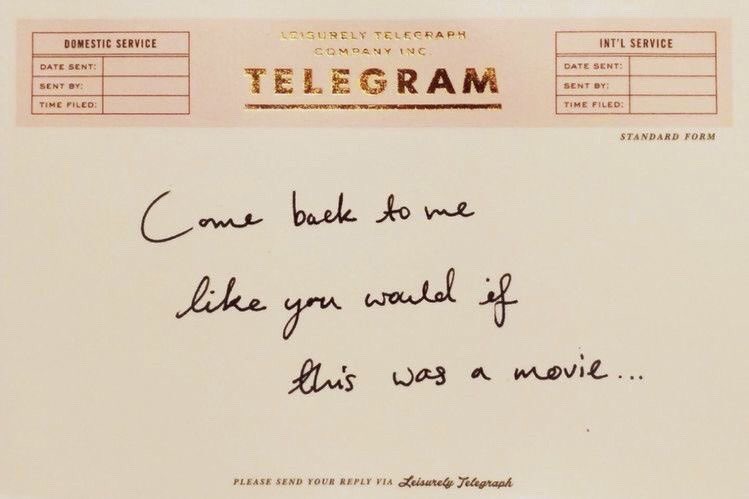 DOMESTIC SERVICE
DATE SENT:
SENT BY:
TIME FILED:
LEISURELY TELEGRAPH
COMPANY INC.
TELEGRAM
INT'L SERVICE
DATE SENT:
SENT BY:
TIME FILED:
STANDARD FORM
Come back to me
like you would if
this was a movie...
PLEASE SEND YOUR REPLY VIA Leisurely Telegraph